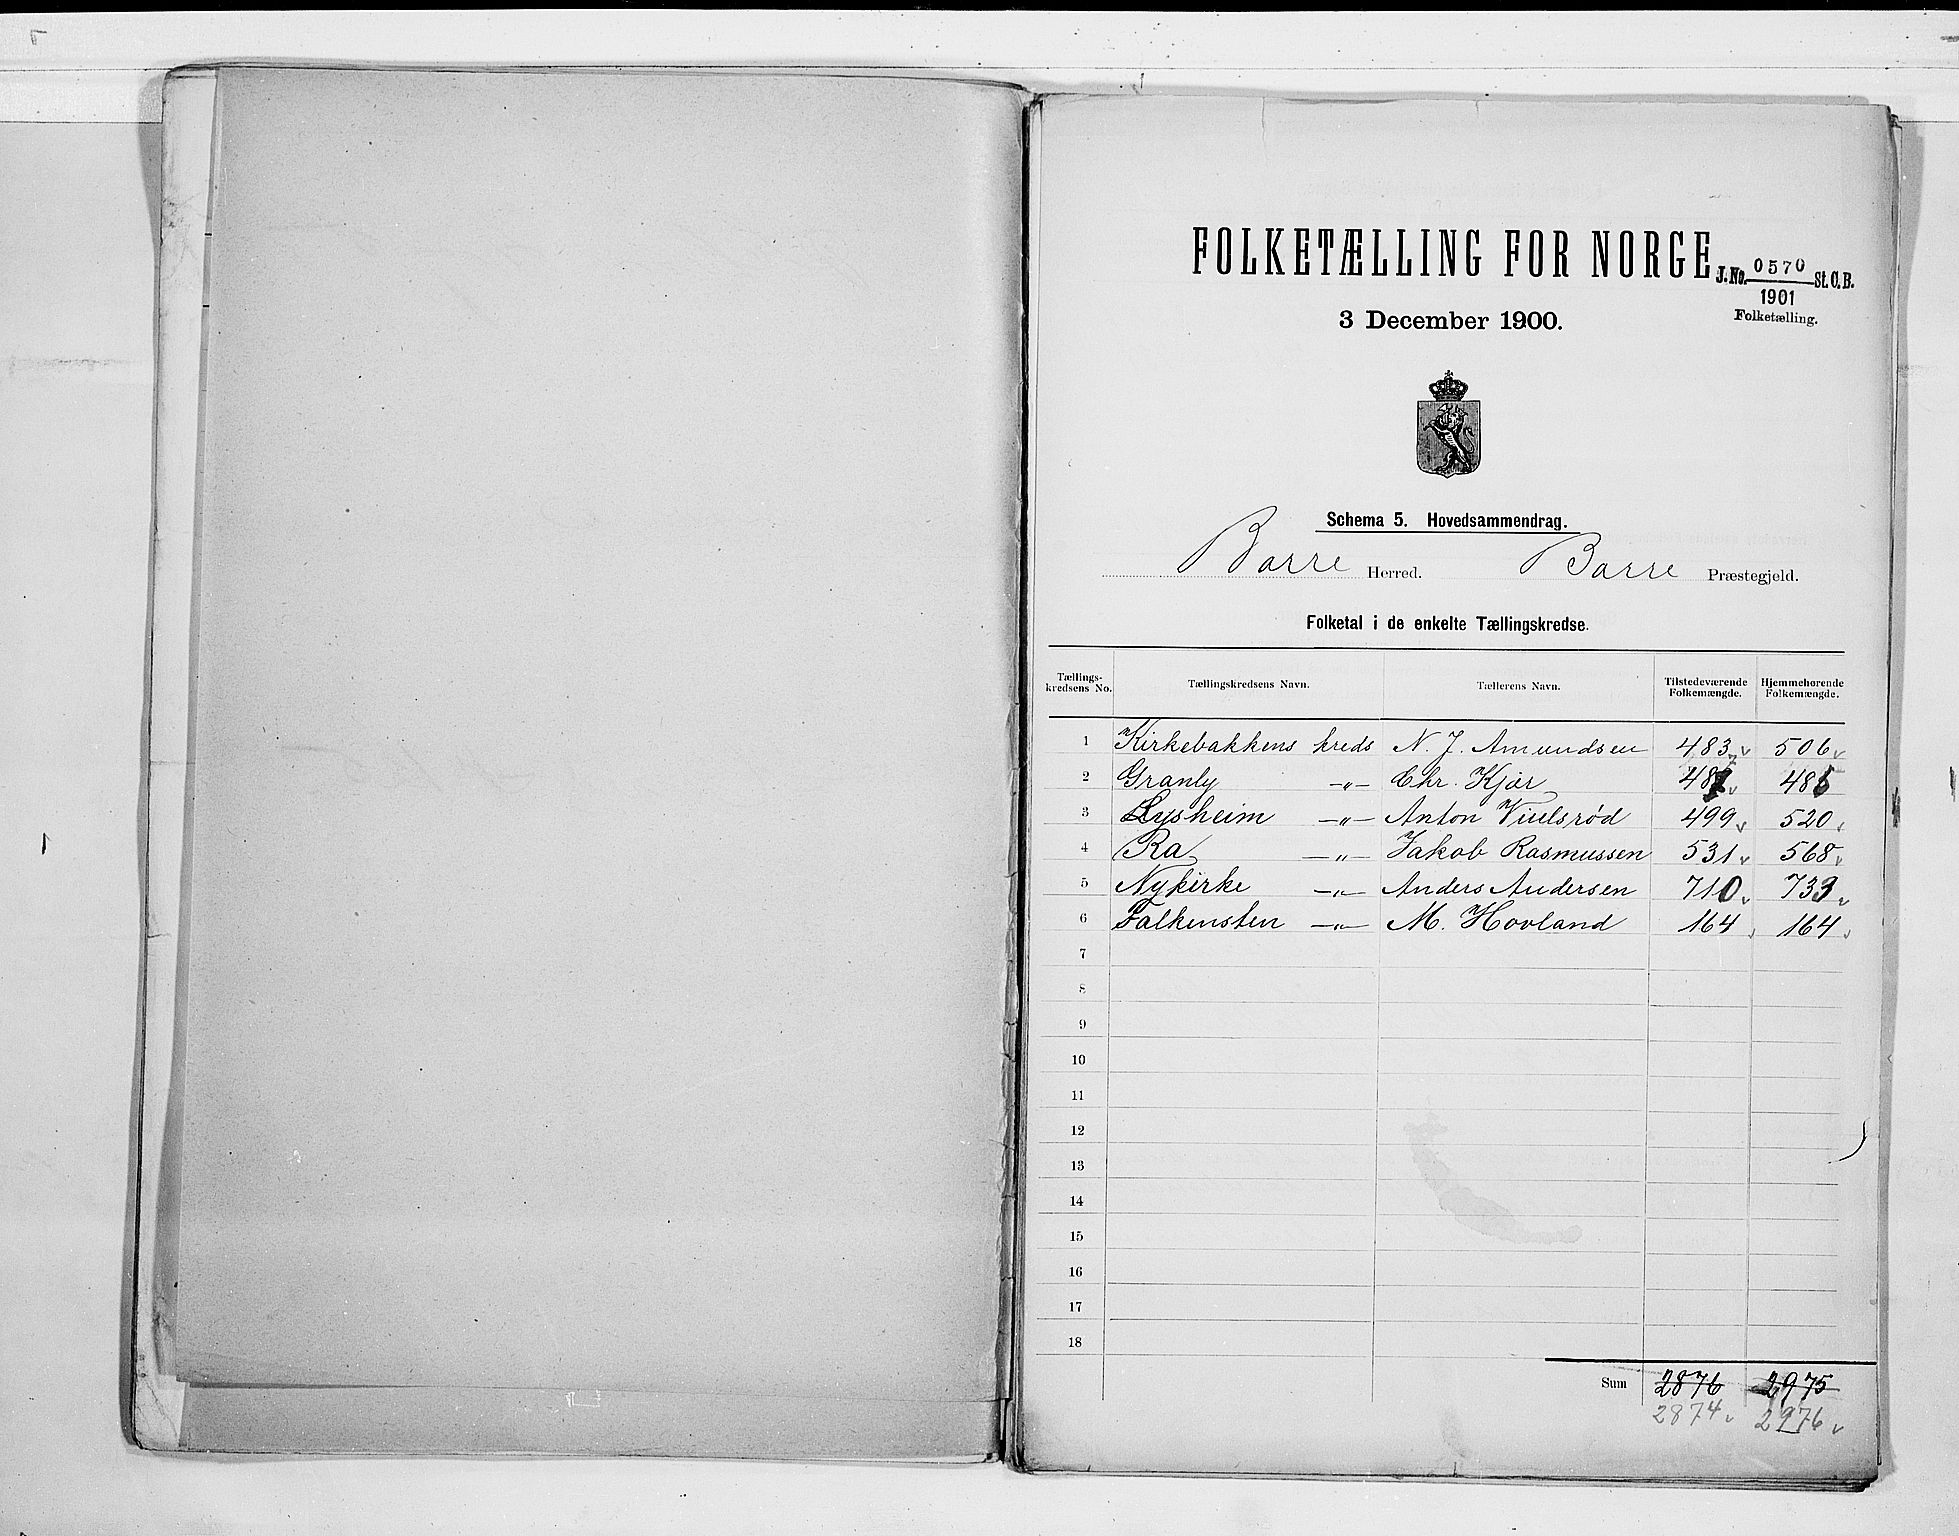 FOLKETÆLLING FOR NORGE
J.No. 0570 St.C.B.
1901
Folketælling.
3 December 1900.
Schema 5. Hovedsammendrag.
Borre Herred. Borre Præstegjeld.
Folketal i de enkelte Tællingskredse.
Tællings-kredsens No. Tællingskredsens Navn. Tællerens Navn. Tilstedeværende Folkemængde. Hjemmehørende Folkemængde.
1 Kirkebakkens kreds N. J. Amundsen 483 506
2 Granly —"— Chr. Kjær 487 485
3 Lysheim —"— Anton Viulsrød 499 520
4 Ra —"— Jakob Rasmussen 531 568
5 Nykirke —"— Anders Andersen 710 733
6 Falkensten —"— M. Hovland 164 164
7
8
9
10
11
12
13
14
15
16
17
18
Sum 2876 2975
2874 2976